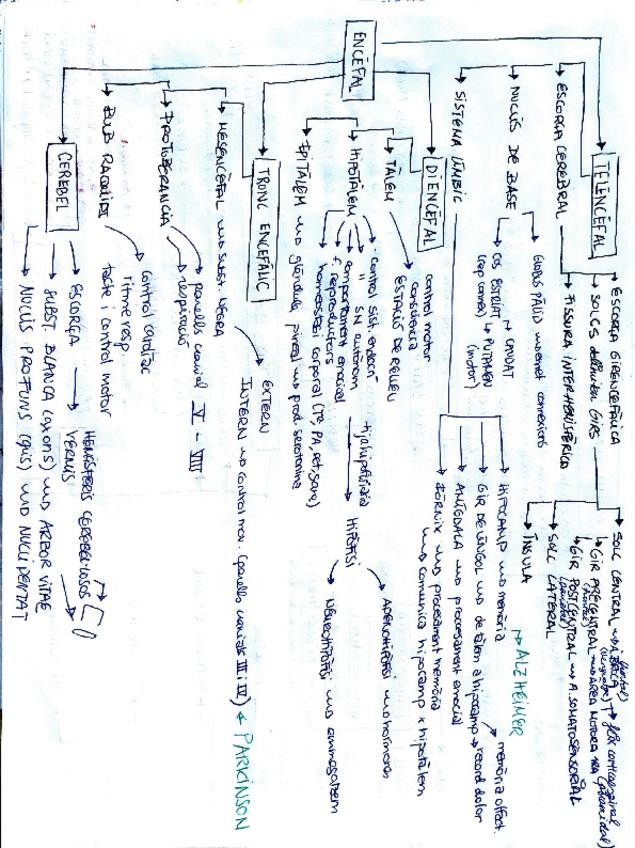 ENCÈFAL
TELENCÈFAL
ESCORÇA CEREBRAL
ESCORÇA GIRENCEFÀLICA
SOLCS delimiten GIRS
SOLC CENTRAL
GIR PRECENTRAL → AREA MOTORA
(frontal)
GIR POSTCENTRAL → A. SOMATOSENSORIAL
(parietal)
SOLC LATERAL
ÍNSULA
FISSURA INTERHEMISFÈRICA
NUCLIS DE BASE
GLOBUS PÀL·LID
connexions
COS ESTRIAT → CAUDAT
→ PUTAMEN
(motor)
SISTEMA LÍMBIC
HIPOCAMP → memòria
→ ALZHEIMER
GIR DE CÍNGOL → de tàlem a hipocamp → record dolor
memòria olfact.
AMÍGDALA → processament emocial
FÒRNIX → processament memòria
→ comunica hipocamp x hipotàlem
DIENCÈFAL
TÀLEM
control motor
consciència
ESTACIÓ DE RELLEU
HIPOTÀLEM
control sist. endocrí
" SN autònom
comportament emocial
f. reproductors
homeostasi corporal (Tª, PA, pet, son)
HIPÒFISI
ADENOHIPÒFISI → hormones
NEUROHIPÒFISI → emmagatzem
EPITÀLEM → glàndula pineal → prod. serotonina
TRONC ENCEFÀLIC
MESENCÈFAL → SUBST. NEGRA
EXTERN
INTERN → control mov. (parells cranials III i IV) ← PARKINSON
PROTUBERÀNCIA
parells cranial V - VIII
respiració
BULB RAQUIDI
control cardíac
ritme resp.
tacte i control motor
CEREBEL
ESCORÇA
HEMISFERIS CEREBEL·LOSOS
VERMIS
SUBST. BLANCA (axons) → ARBOR VITAE
NUCLIS PROFUNS (gris) → NUCLI DENTAT